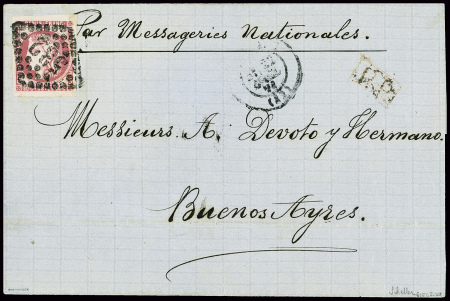 Par Messageries Nationales.
Messieurs. A. Devoto y Hermano.
Buenos Ayres.